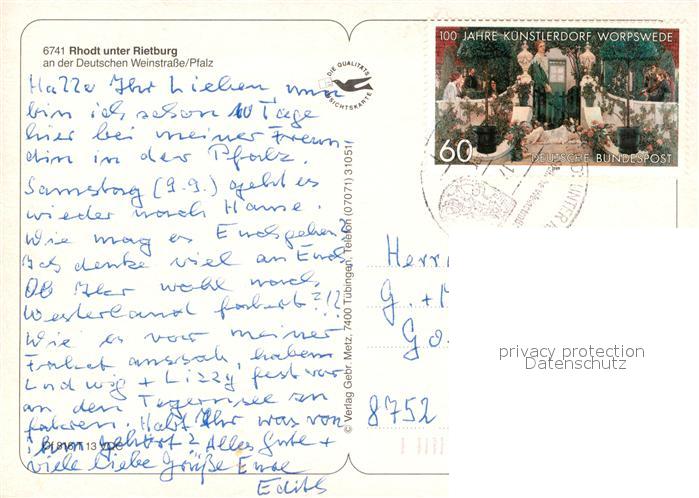 6741 Rhodt unter Rietburg
an der Deutschen Weinstraße/Pfalz
DIE QUALITÄTS ANSICHTSKARTE
100 JAHRE KÜNSTLERDORF WORPSWEDE
60 DEUTSCHE BUNDESPOST
Hallo Ihr Lieben nun
bin ich schon 10 Tage
hier bei meiner Freun
din in der Pfalz.
Samstag (9.9.) geht es
wieder nach Hause.
Wie mag es Euch gehen?
Ich denke viel an Euch
Ob Ihr wohl nach
Westerland fahrt?!!
Wie es vor meiner
Fahrt aussah, haben
Ludwig + Lizzy fest vor
an den Tegernsee zu
fahren. Habt Ihr was von
ihnen gehört? Alles Gute +
viele liebe Grüße Eure
Edith
© Verlag Gebr. Metz, 7400 Tübingen, Telefon (07071) 31051
Herr
G. +
Go
8752
privacy protection
Datenschutz